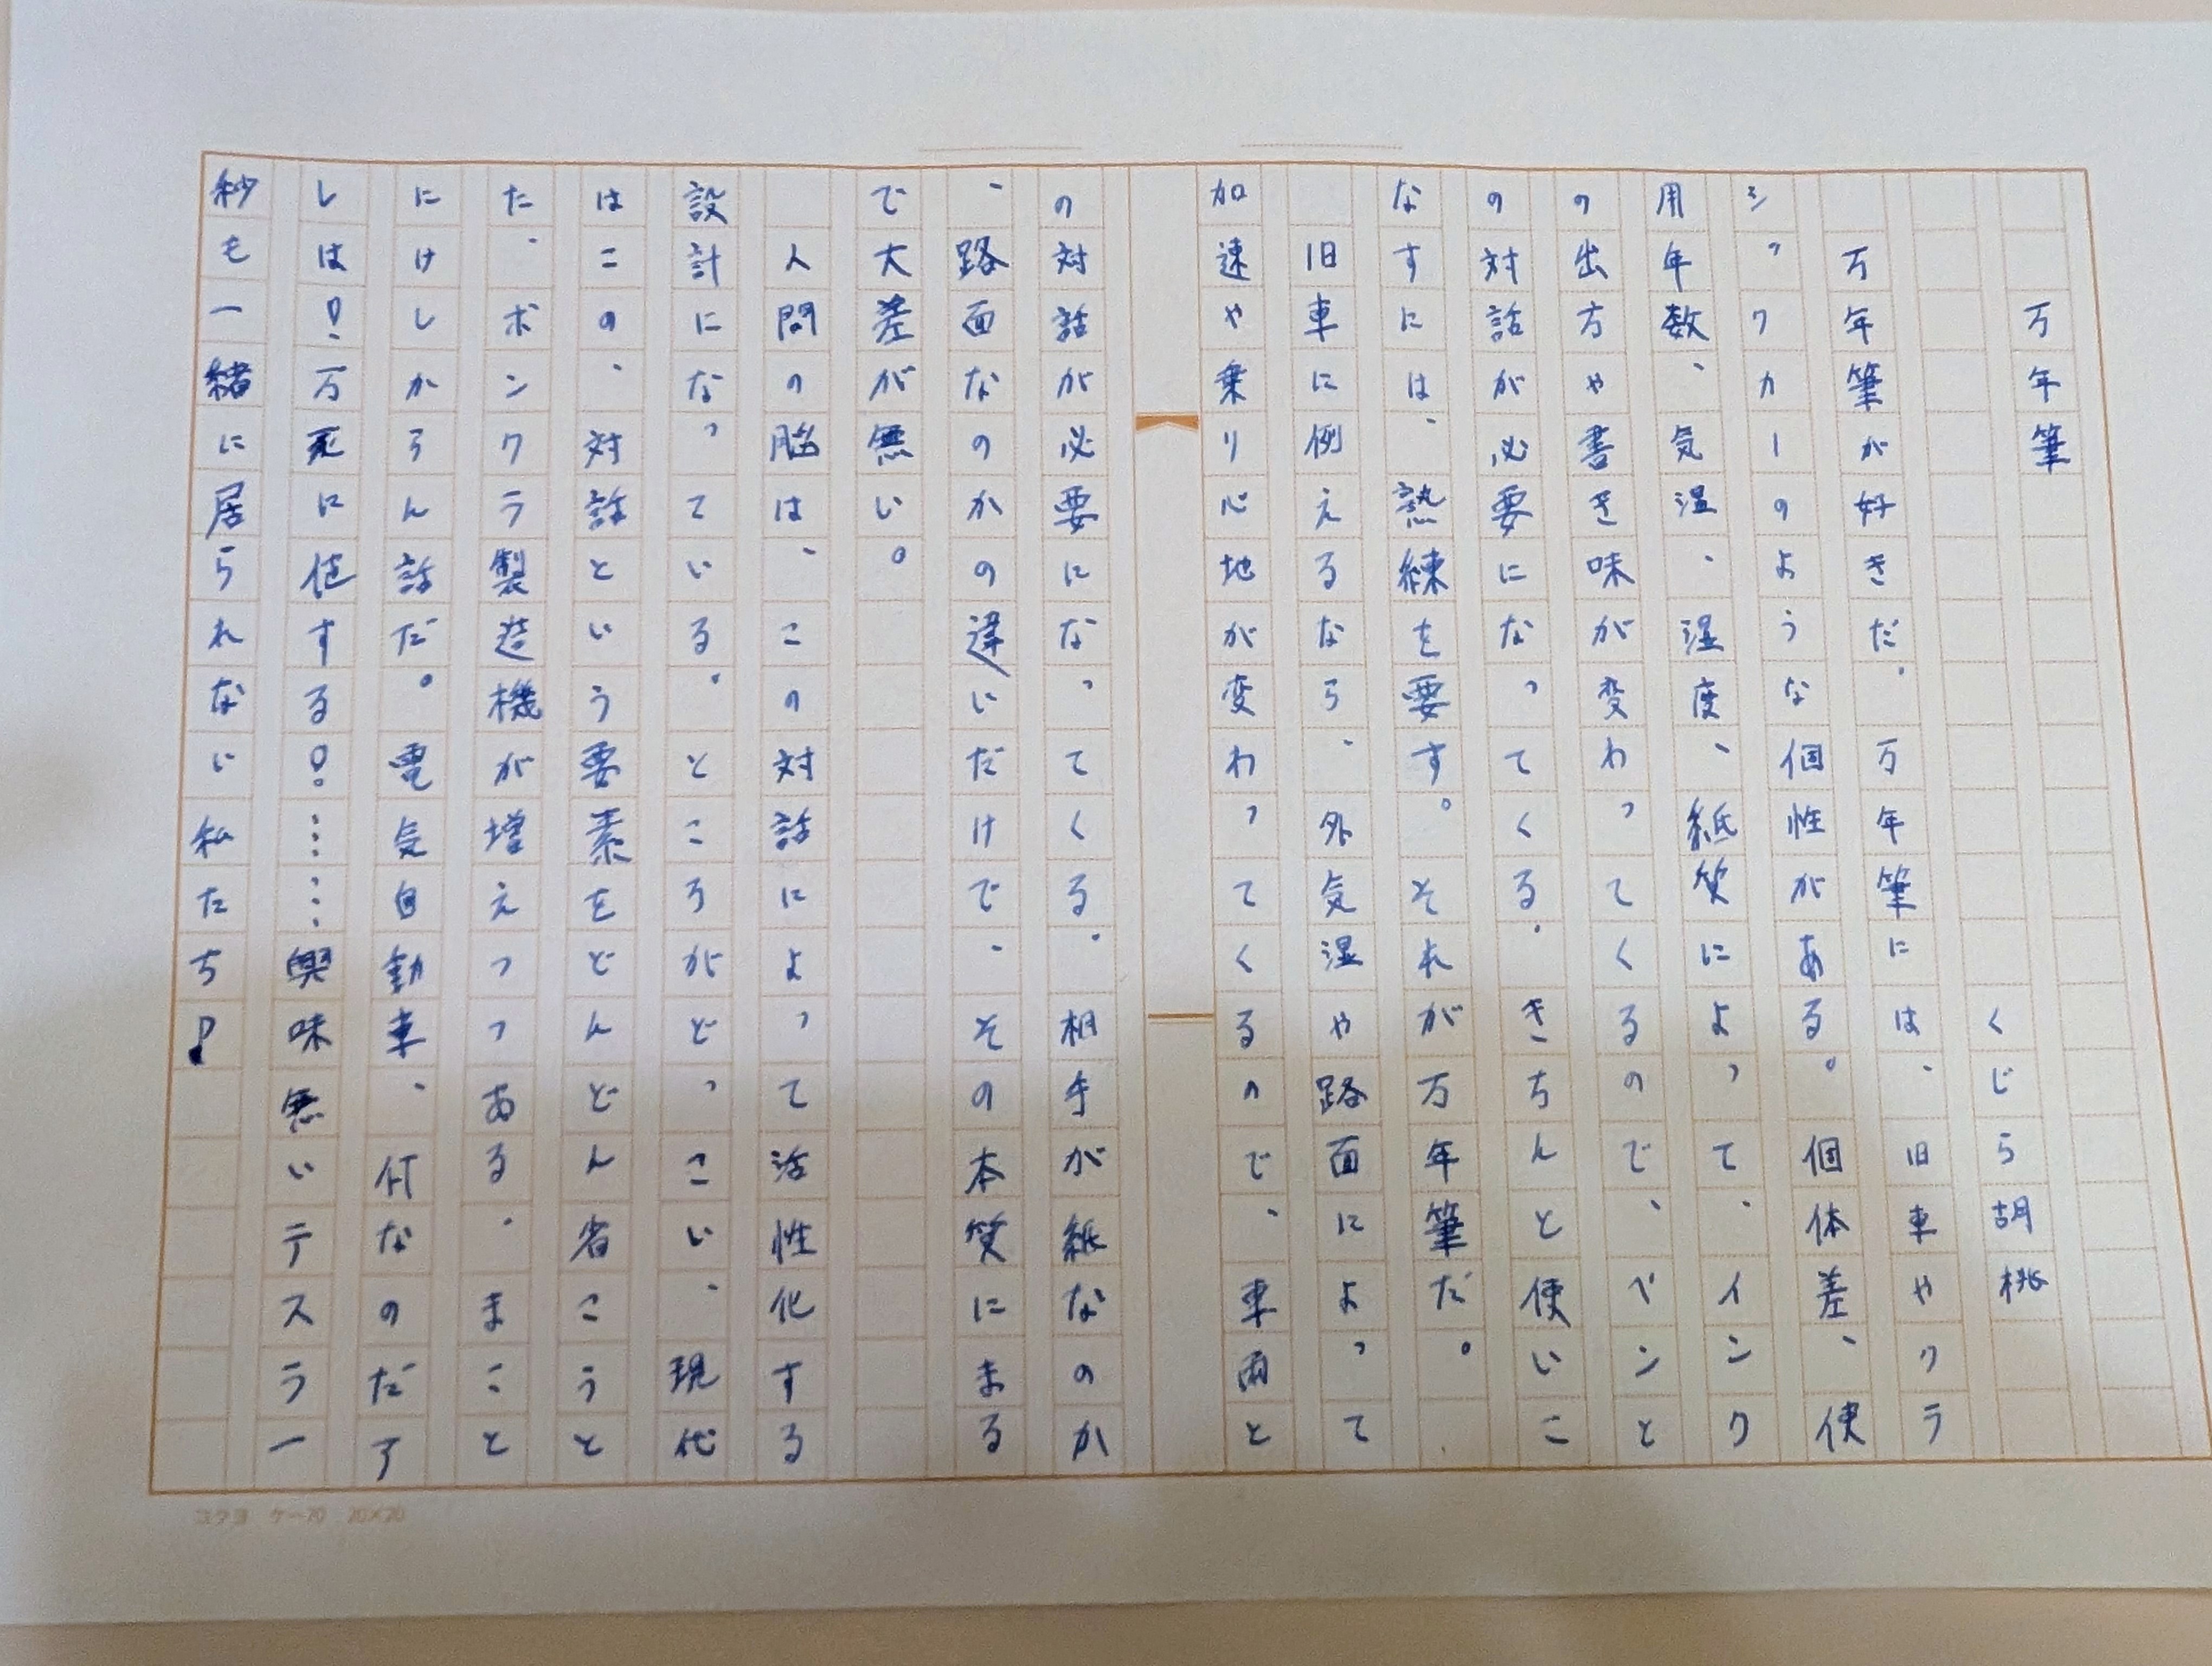 万年筆
くじら胡桃
万年筆が好きだ。万年筆には、旧車やクラ
シックカーのような個性がある。個体差、使
用年数、気温、湿度、紙質によって、インク
の出方や書き味が変わってくるので、ペンと
の対話が必要になってくる。きちんと使いこ
なすには、熟練を要す。それが万年筆だ。
旧車に例えるなら、外気湿や路面によって
加速や乗り心地が変わってくるので、車両と
の対話が必要になってくる。相手が紙なのか
、路面なのかの違いだけで、その本質にまる
で大差が無い。
人間の脳は、この対話によって活性化する
設計になっている。ところがどっこい、現代
はこの、対話という要素をどんどん省こうと
た、ポンクラ製造機が増えつつある。まこと
にけしからん話だ。電気自動車、何なのだア
レは!万死に値する!……興味無いテスラ一
秒も一緒に居られない私たち♪
コクヨ ケー70 20×20